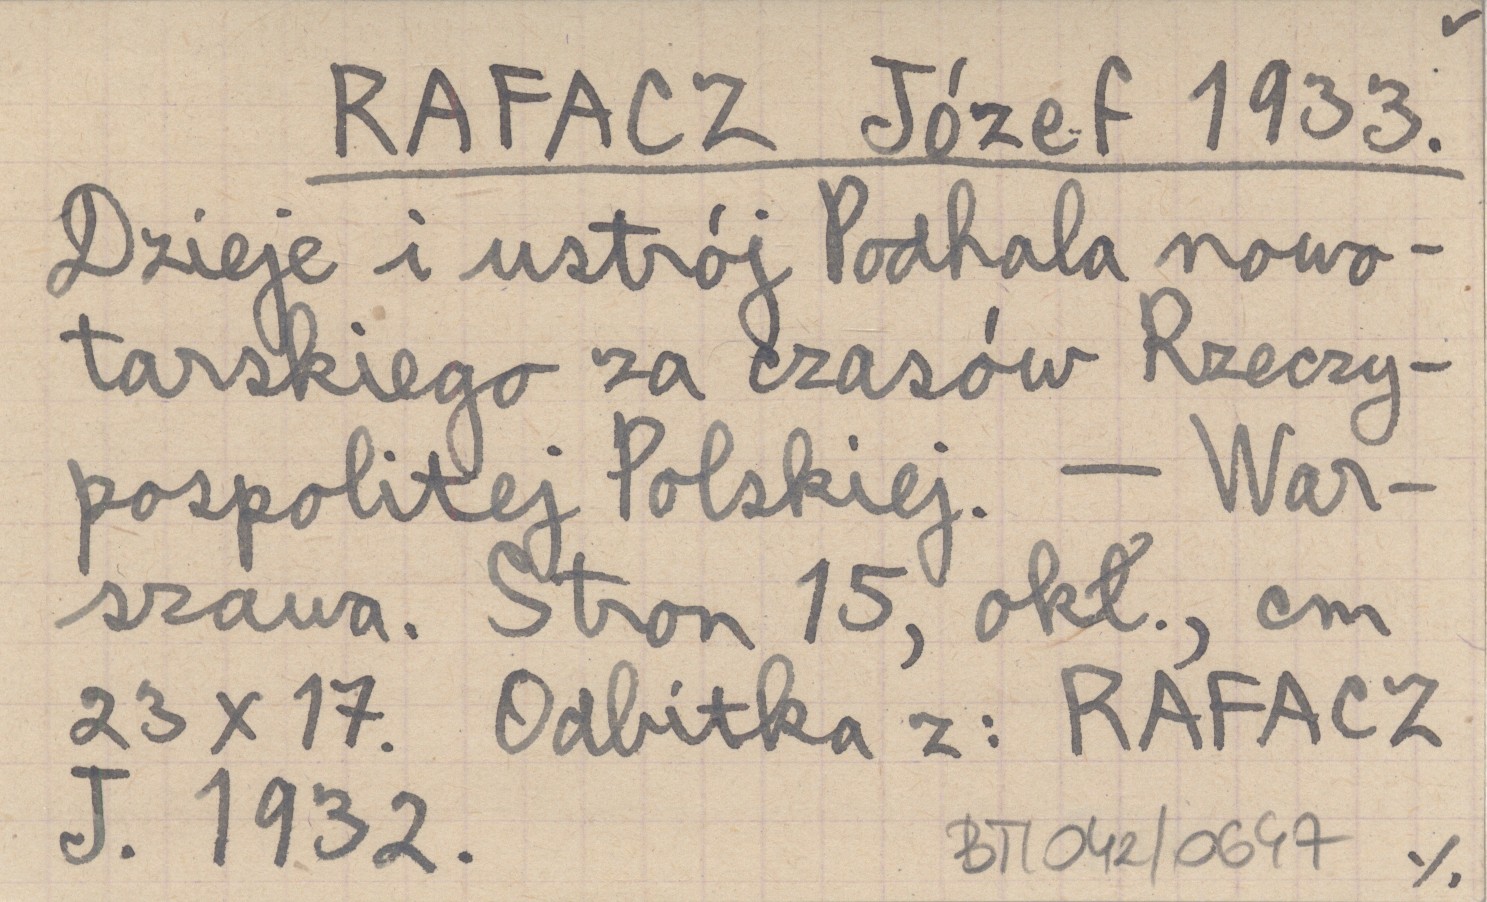 RAFACZ Józef 1933.
Dzieje i ustrój Podhala nowo-
tarskiego za czasów Rzeczy-
pospolitej Polskiej. — War-
szawa. Stron 15, okł., cm
23 x 17. Odbitka z: RAFACZ
J. 1932.
BTI 042/0647